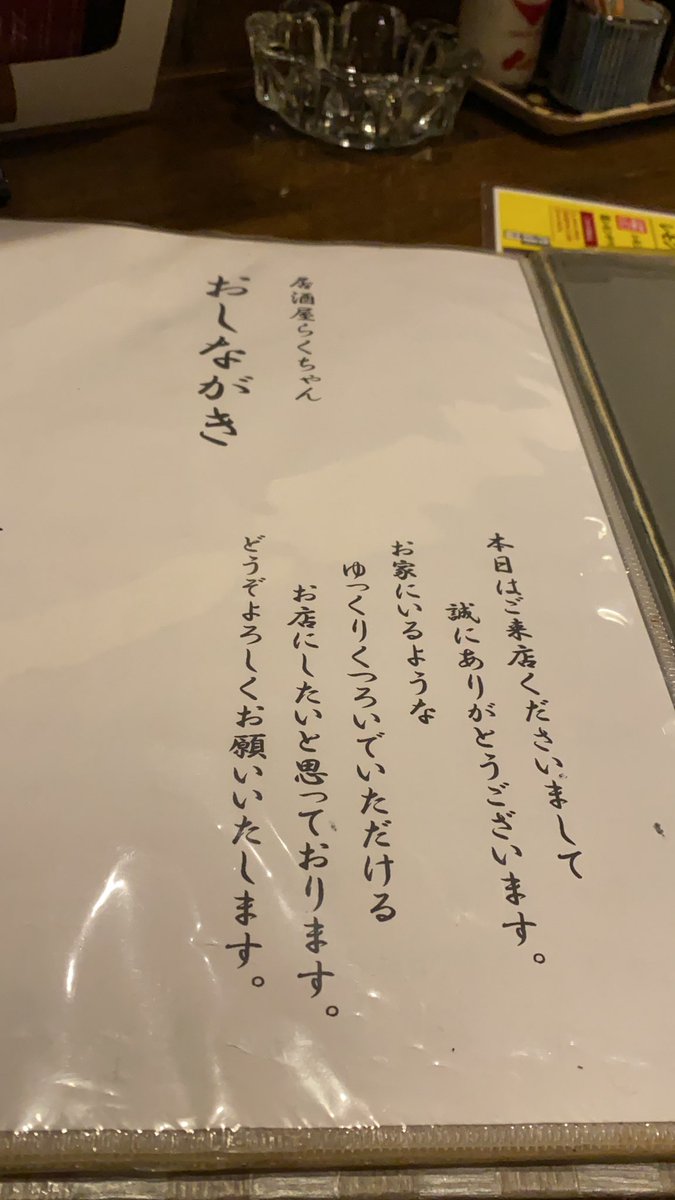 居酒屋らくちゃん
おしながき
本日はご来店くださいまして
誠にありがとうございます。
お家にいるような
ゆっくりくつろいでいただける
お店にしたいと思っております。
どうぞよろしくお願いいたします。